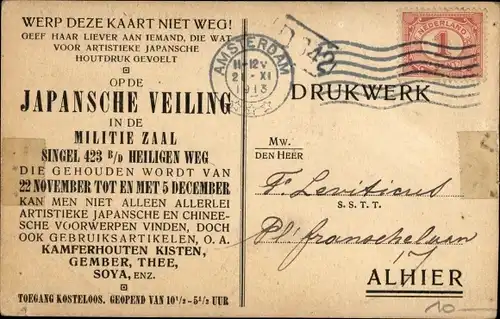 WERP DEZE KAART NIET WEG!
GEEF HAAR LIEVER AAN IEMAND, DIE WAT
VOOR ARTISTIEKE JAPANSCHE
HOUTDRUK GEVOELT
OP DE
JAPANSCHE VEILING
IN DE
MILITIE ZAAL
SINGEL 423 B/D HEILIGEN WEG
DIE GEHOUDEN WORDT VAN
22 NOVEMBER TOT EN MET 5 DECEMBER
KAN MEN NIET ALLEEN ALLERLEI
ARTISTIEKE JAPANSCHE EN CHINEE-
SCHE VOORWERPEN VINDEN, DOCH
OOK GEBRUIKSARTIKELEN, O. A.
KAMFERHOUTEN KISTEN,
GEMBER, THEE,
SOYA, ENZ.
TOEGANG KOSTELOOS. GEOPEND VAN 10½-5½ UUR
AMSTERDAM
11-12V
21 XI
1913
NEDERLAND
1
DRUKWERK
MW.
DEN HEER
F. Leviticus
S. S. T. T.
Pl. franschelaan
17
ALHIER
10-